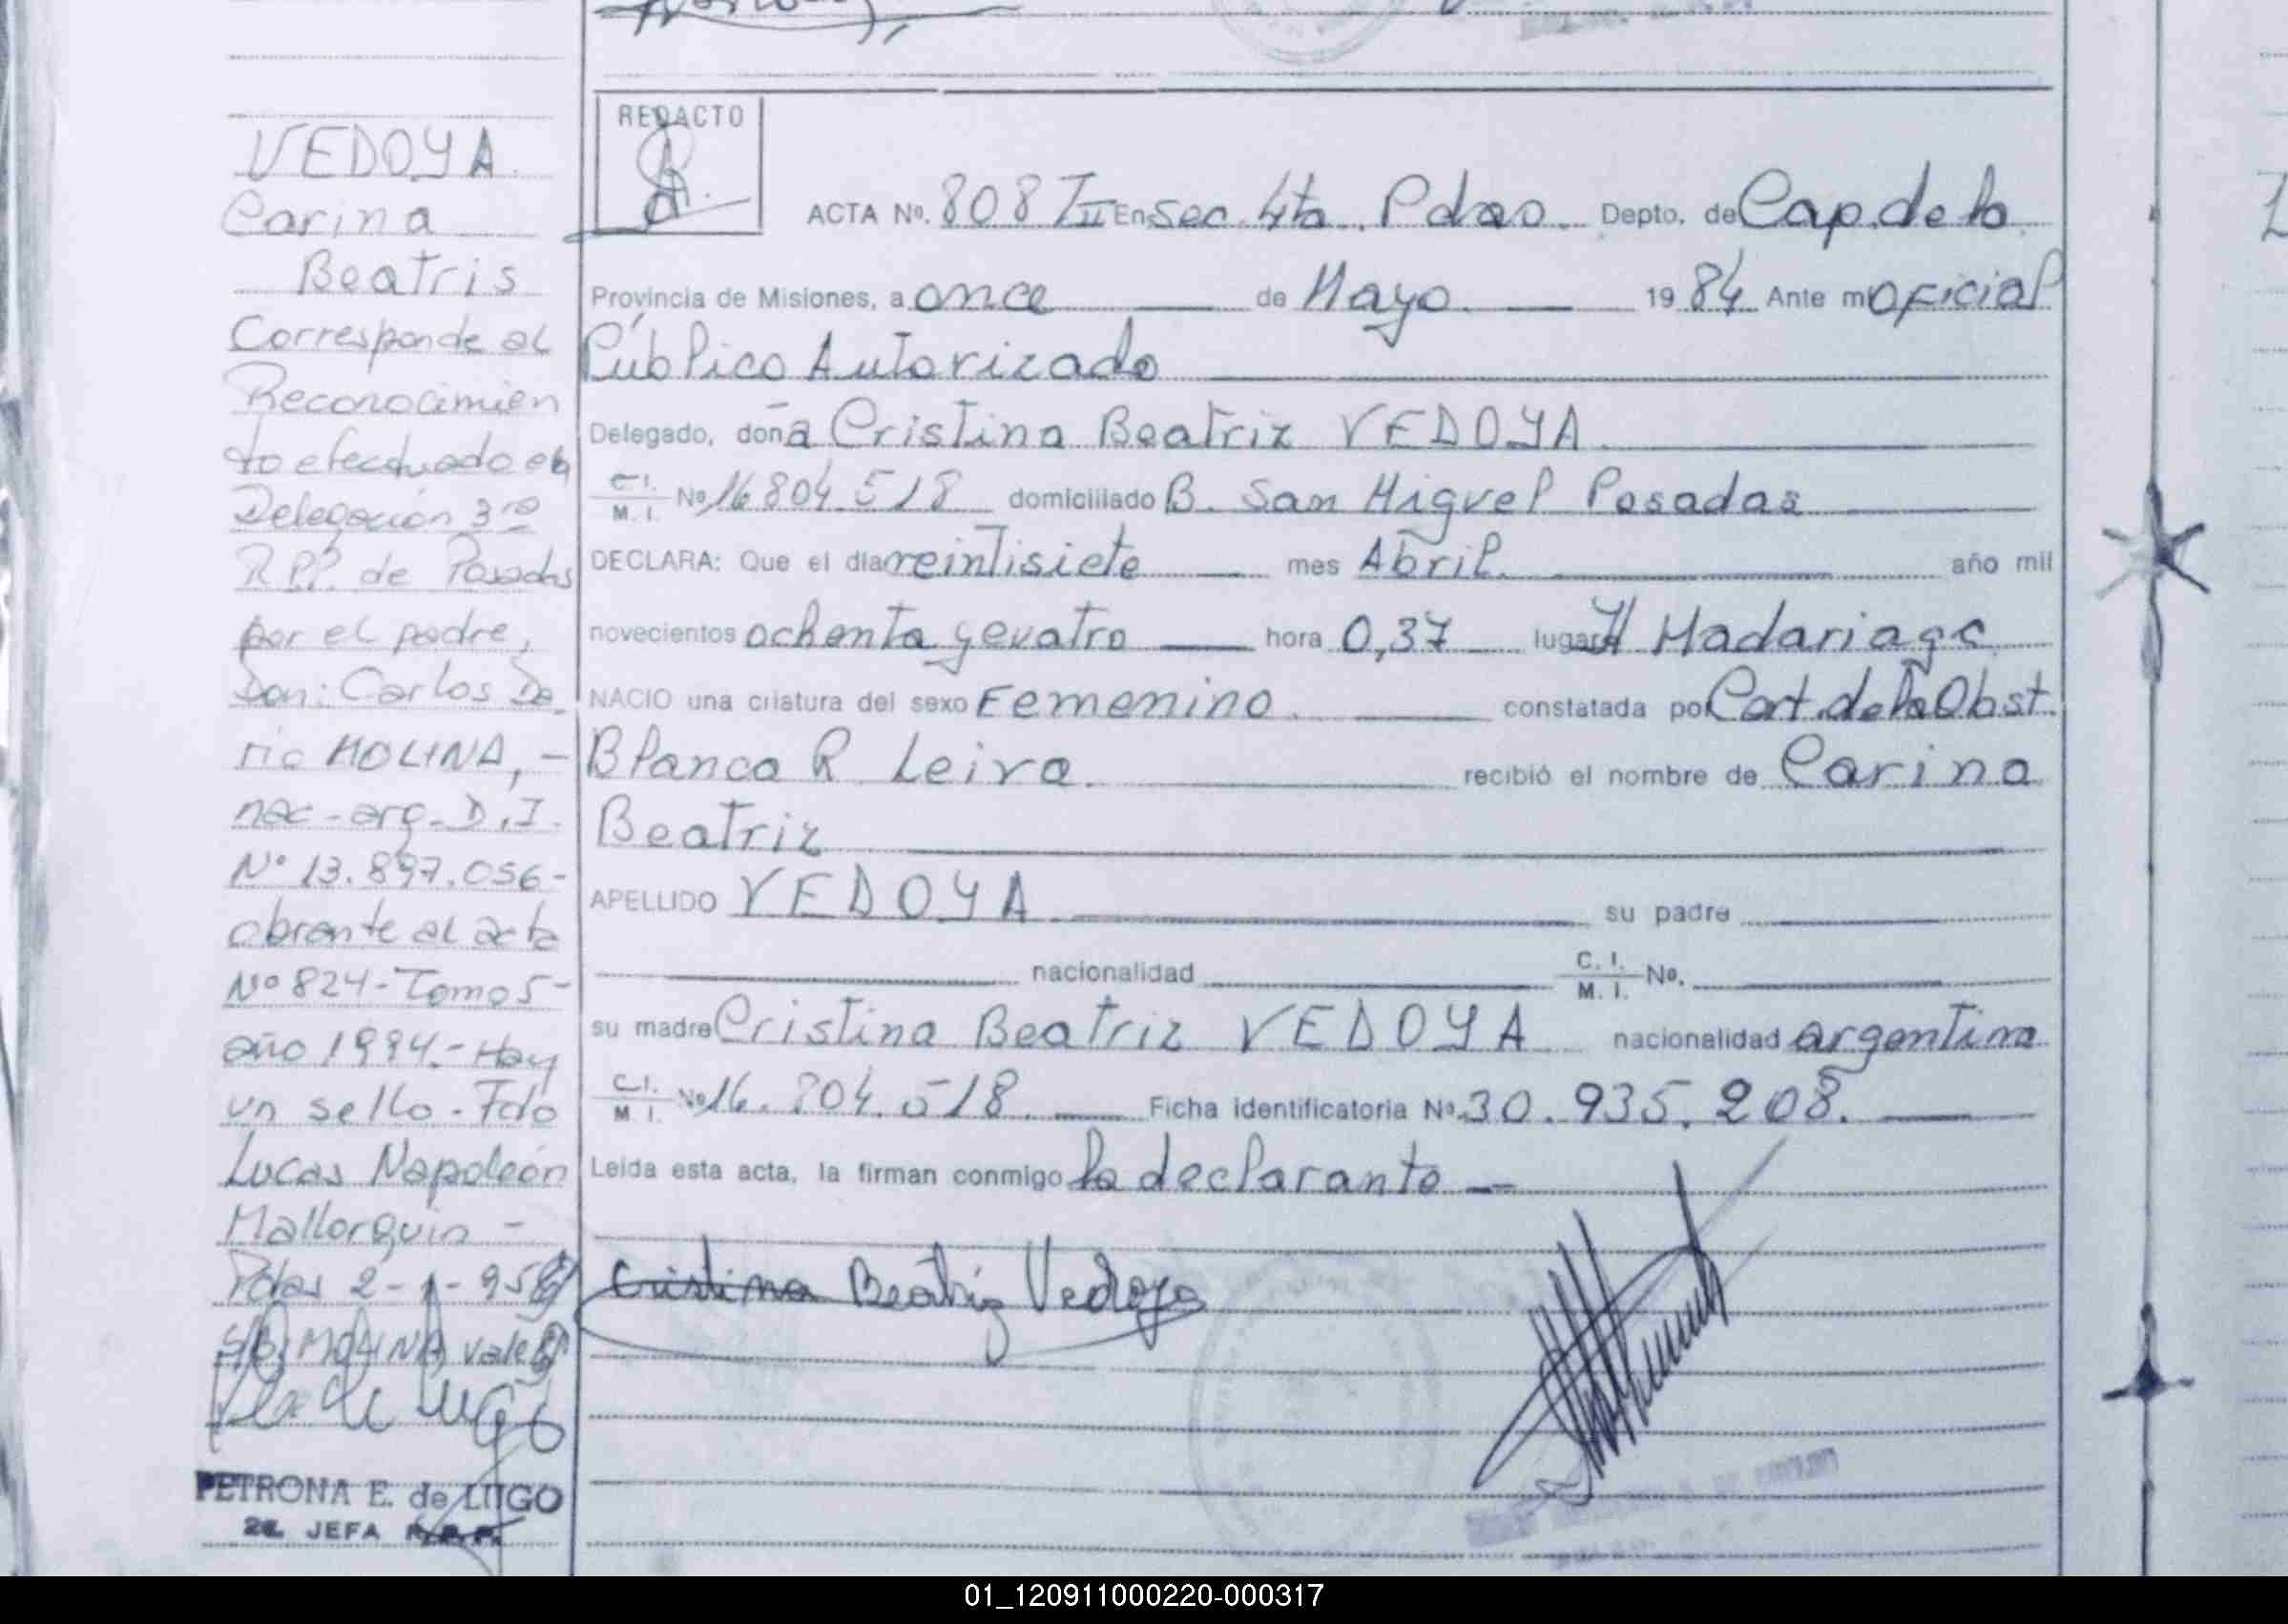 VEDOYA
Carina
Beatris
Corresponde al
Reconocimien
to efectuado en
Delegación 3ra
R.P.P. de Posadas
por el padre,
Don: Carlos Da
rio MOLINA, -
nac - arg - D.I.
Nº 13.897.056 -
obrante al acta
Nº 824 - Tomo 5 -
año 1994.- Hay
un sello - Fdo
Lucas Napoleón
Mallorquin -
Pdas 2-1-95
S/B MOLINA Vale
PETRONA E. de LUGO
2a. JEFA R.P.P.
REDACTO
ACTA Nº. 808 T II En Sec. 4ta. Pdas. Depto. de Cap. de la
Provincia de Misiones, a once de Mayo 1984 Ante mi Oficial
Público Autorizado
Delegado, doña Cristina Beatriz VEDOYA.
C.I. M.I. Nº 16.804.518 domicililado B. San Miguel Posadas
DECLARA: Que el día veintisiete mes Abril. año mil
novecientos ochenta y cuatro hora 0,37 lugar H Madariaga
NACIO una criatura del sexo Femenino. constatada por Cert. de la Obst.
Blanca R Leiva. recibió el nombre de Carina
Beatriz
APELLIDO VEDOYA su padre
nacionalidad C. I. M. I. Nº.
su madre Cristina Beatriz VEDOYA nacionalidad argentina
C.I. M.I. Nº 16.804.518. Ficha identificatoria Nº 30.935.208.
Leida esta acta, la firman conmigo la declarante
Cristina Beatriz Vedoya
01_120911000220-000317